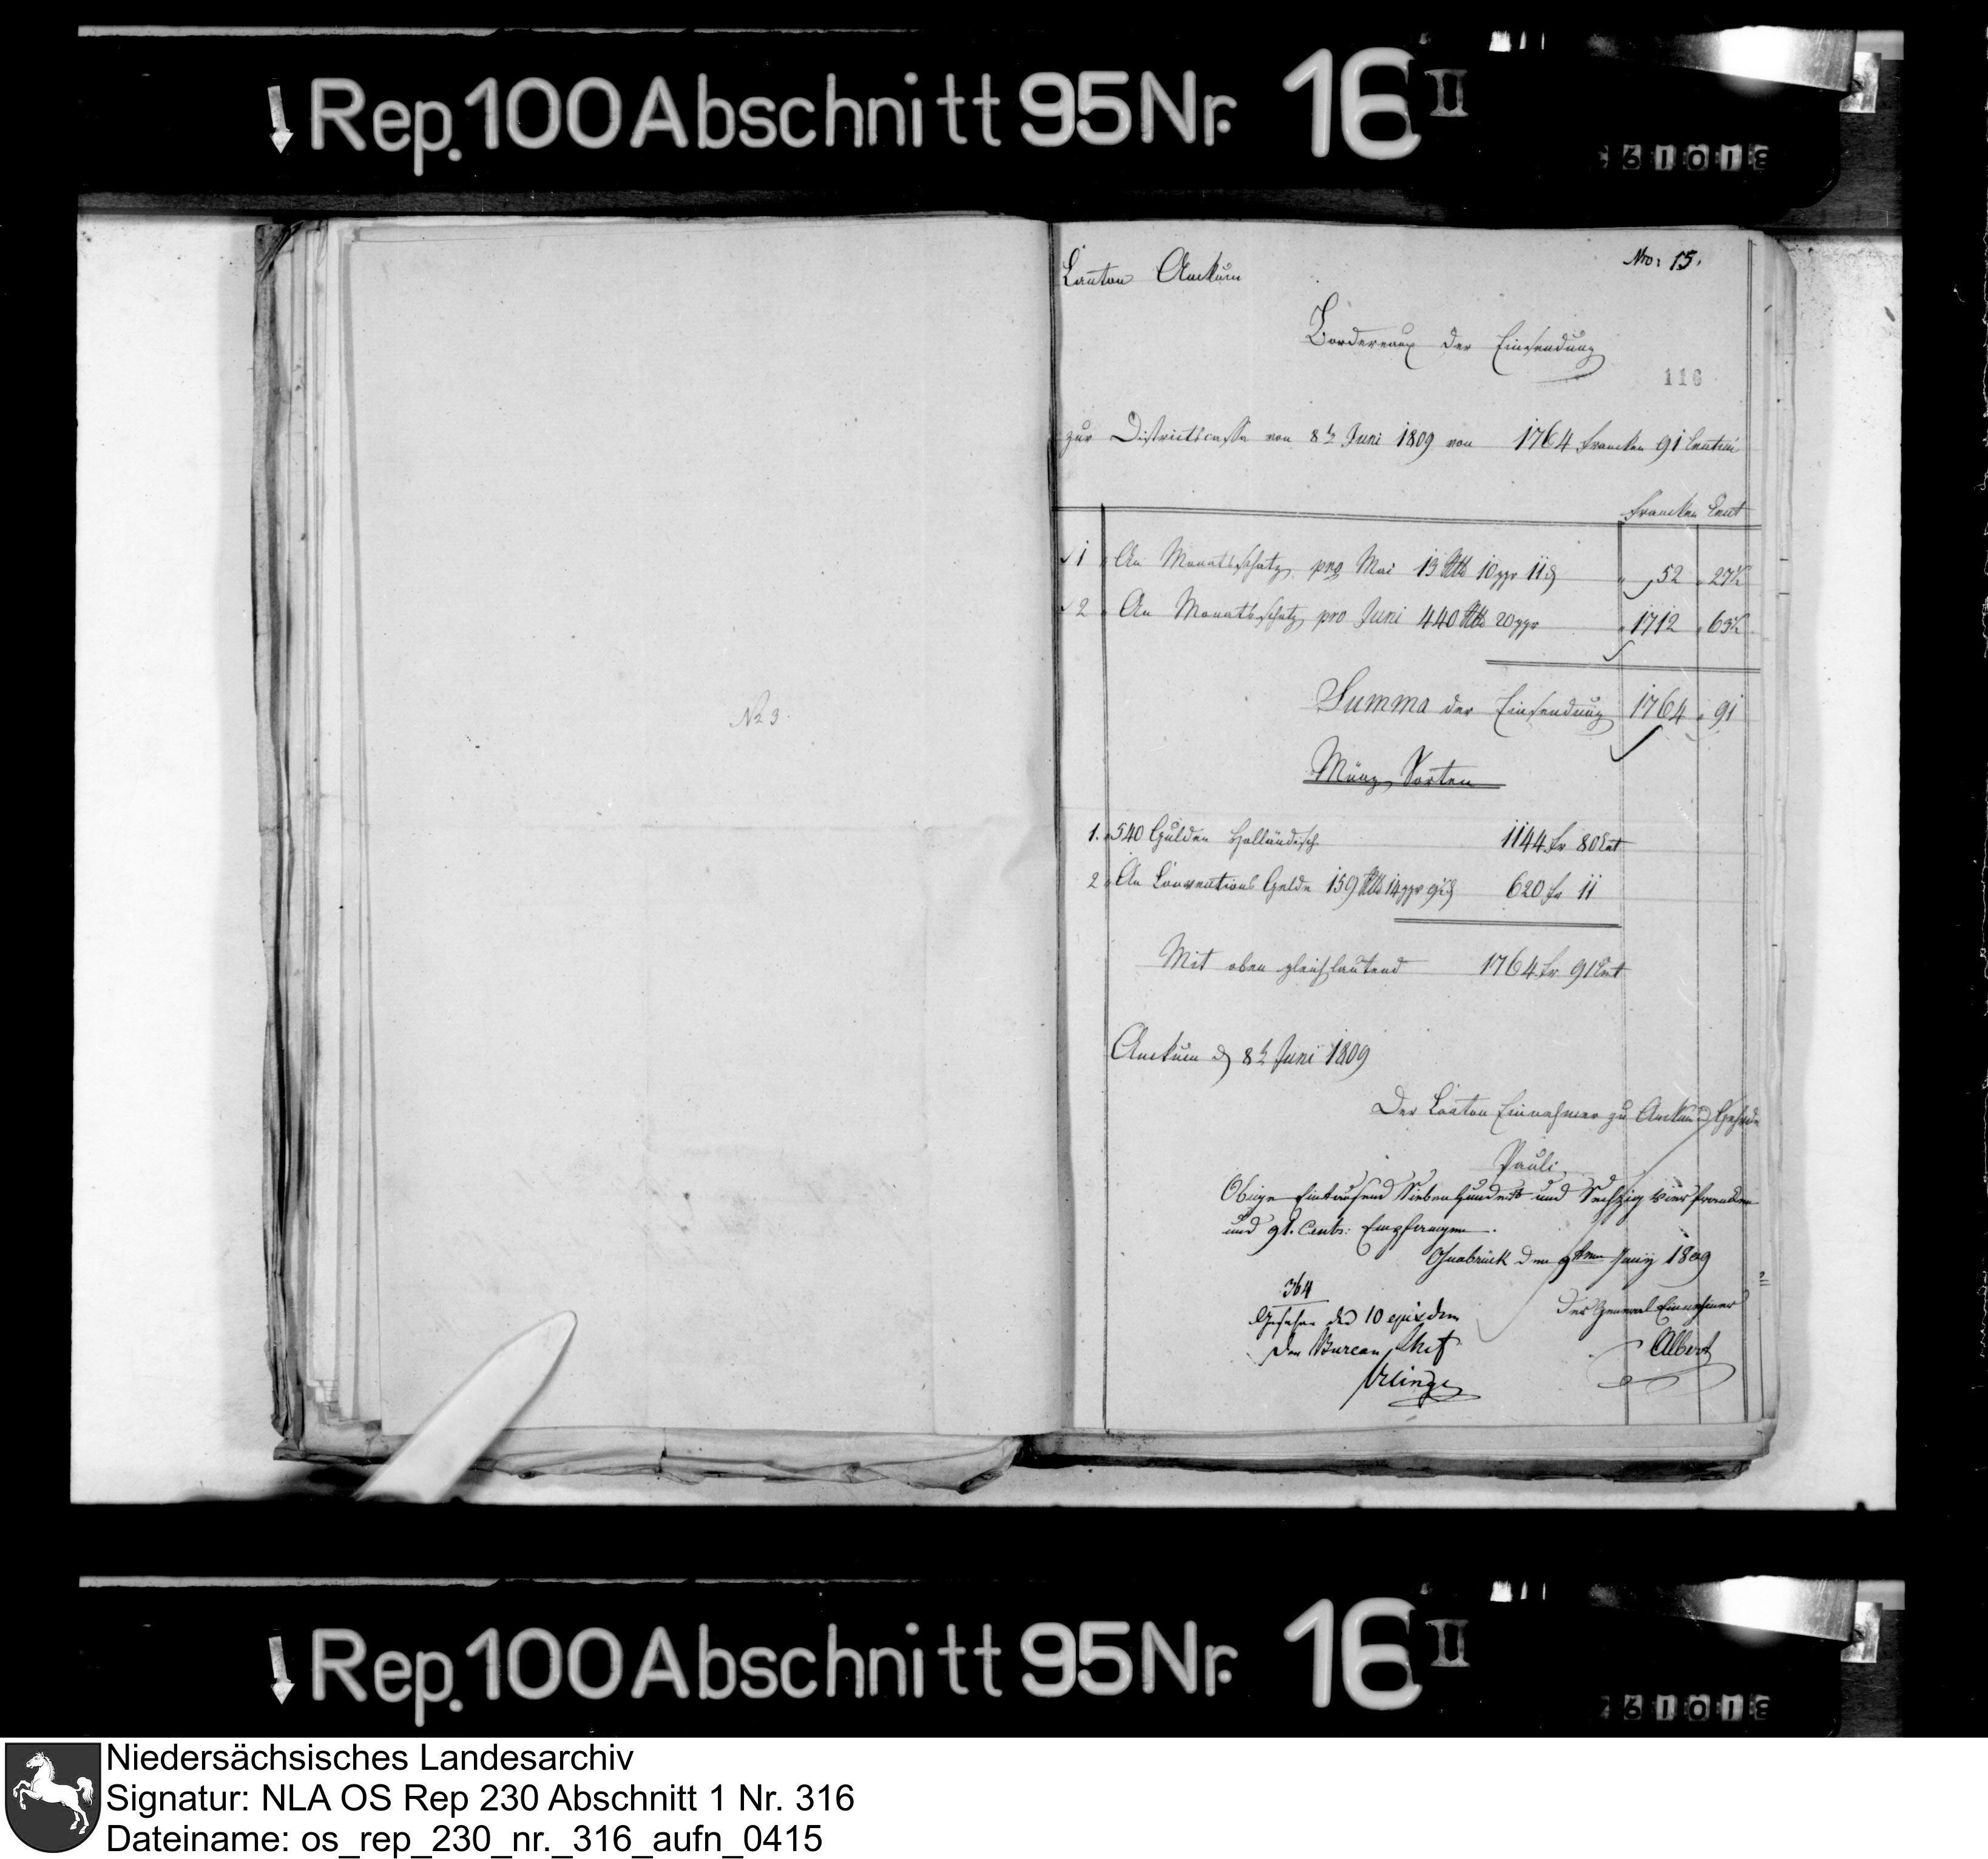 Rep. 100 Abschnitt 95 Nr. 16 II
Nro: 15.
Canton Anckum
Bordereaux der Einsendung
116
zur Districtscasse von 8t Juni 1809 von 1764 Francken 91 Centim
Francken Cent
1 An Monathsschatz pro Mai 13 Rtlr 10 ggr 11 d 52 27½
2 An Monathsschatz pro Juni 440 Rtlr 20 ggr 1712 63½
Summa der Einsendung 1764 91
No 3.
Münz Sorten
1. 540 Gulden Holländisch 1144 fr 80 Cent
2 An Conventions Gelde 159 Rtlr 14 ggr 9 d 620 fr 11
Mit oben gleichlautend 1764 fr 91 Cent
Anckum d 8t Juni 1809
Der Canton Einnehmer zu Anckum u Gehrde
Pauli
Obige Eintausend Siebenhundert und Sechzig vier Francken
und 91. Cents: Empfangen.
Osnabrück den 9ten Juny 1809
364
Gesehen der General Einnehmer
Der Bureau Chef Albert
Niedersächsisches Landesarchiv
Signatur: NLA OS Rep 230 Abschnitt 1 Nr. 316
Dateiname: os_rep_230_nr._316_aufn_0415